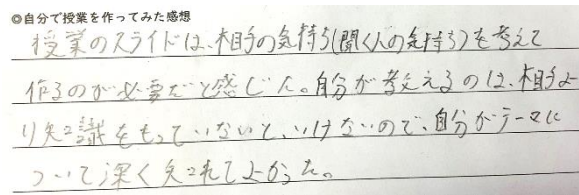 ◎自分で授業を作ってみた感想
授業のスライドは、相手の気持ち(聞く人の気持ち)を考えて
作るのが必要だと感じた。自分が考えるのは、相手よ
り知識をもっていないと、いけないので、自分がテーマに
ついて深く知れてよかった。